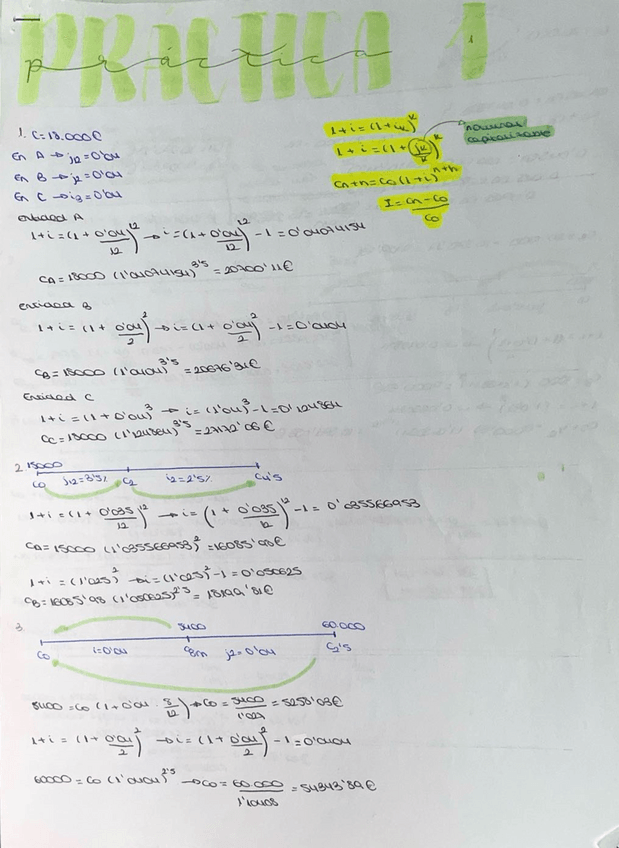 PRÁCTICA 1
práctica
1
1. C=18.000€
En A → j12=0'04
En B → j2=0'04
En C → i3=0'04
1+i=(1+ik)^k
1+i=(1+(jk/k))^k
nominal capitalizable
Cn+h=Co(1+i)^n+h
I=Cn-Co/Co
entidad A
1+i=(1+0'04/12)^12 → i=(1+0'04/12)^12 -1=0'04074154
CA=18000 (1'04074154)^3'5=20700'11€
entidad B
1+i=(1+0'04/2)^2 → i=(1+0'04/2)^2 -1=0'0404
CB=18000 (1'0404)^3'5=20676'34€
Entidad C
1+i=(1+0'04)^3 → i=(1'04)^3 -1=0'124864
CC=18000 (1'124864)^3'5=27172'06€
2. 15000
Co j12=3'5% C2 i2=2'5% C4'5
1+i=(1+0'035/12)^12 → i=(1+0'035/12)^12 -1=0'035566953
CA=15000 (1'035566953)^2=16085'98€
1+i=(1'025)^2 → i=(1'025)^2 -1=0'050625
CB=16085'98 (1'050625)^2'5=18199'81€
3. 5400 60.000
Co i=0'04 j2=0'04 C2'5
5400=Co (1+0'04·3/12) → Co=5400/1'027=5258'03€
1+i=(1+0'04/2)^2 → i=(1+0'04/2)^2 -1=0'0404
60000=Co (1'0404)^2'5 → Co=60.000/1'10408=54343'89€